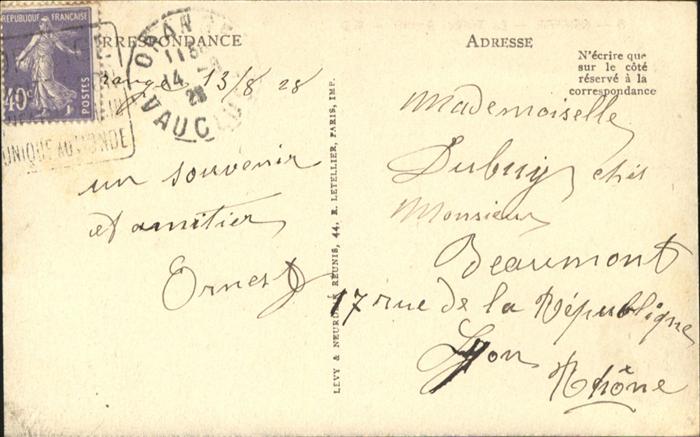 RÉPUBLIQUE FRANÇAISE
40c
POSTES
ORANGE
VAUCLUSE
UNIQUE AU MONDE
CORRESPONDANCE
Orange, 13/8 28
un souvenir
et amitier
Ernest
LEVY & NEURDEIN RÉUNIS, 44, R. LETELLIER, PARIS, IMP.
ADRESSE
N'écrire que
sur le côté
réservé à la
correspondance
Mademoiselle
Dubuy chés
Monsieur
Beaumont
17 rue de la République
Lyon
Rhône